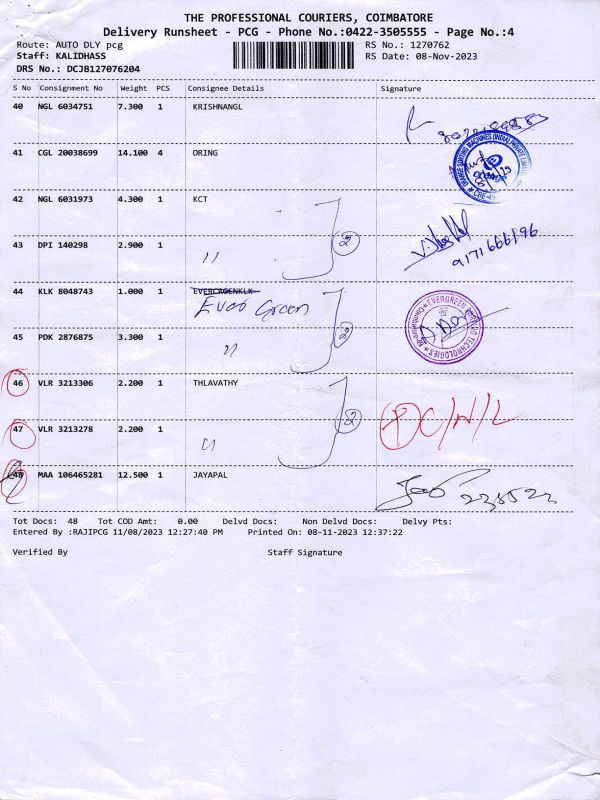 THE PROFESSIONAL COURIERS, COIMBATORE
Delivery Runsheet - PCG - Phone No.:0422-3505555 - Page No.:4
Route: AUTO DLY pcg RS No.: 1270762
Staff: KALIDHASS RS Date: 08-Nov-2023
DRS No.: DCJB127076204
S No Consignment No Weight PCS Consignee Details Signature
40 NGL 6034751 7.300 1 KRISHNANGL
41 CGL 20038699 14.100 4 ORING
42 NGL 6031973 4.300 1 KCT
43 DPI 140298 2.900 1 〃 9171666196
44 KLK 8048743 1.000 1 EVERCRGENKLK
Ever Green
45 PDK 2876875 3.300 1 〃
46 VLR 3213306 2.200 1 THLAVATHY
47 VLR 3213278 2.200 1 〃
48 MAA 106465281 12.500 1 JAYAPAL
Tot Docs: 48 Tot COD Amt: 0.00 Delvd Docs: Non Delvd Docs: Delvy Pts:
Entered By :RAJIPCG 11/08/2023 12:27:40 PM Printed On: 08-11-2023 12:37:22
Verified By Staff Signature